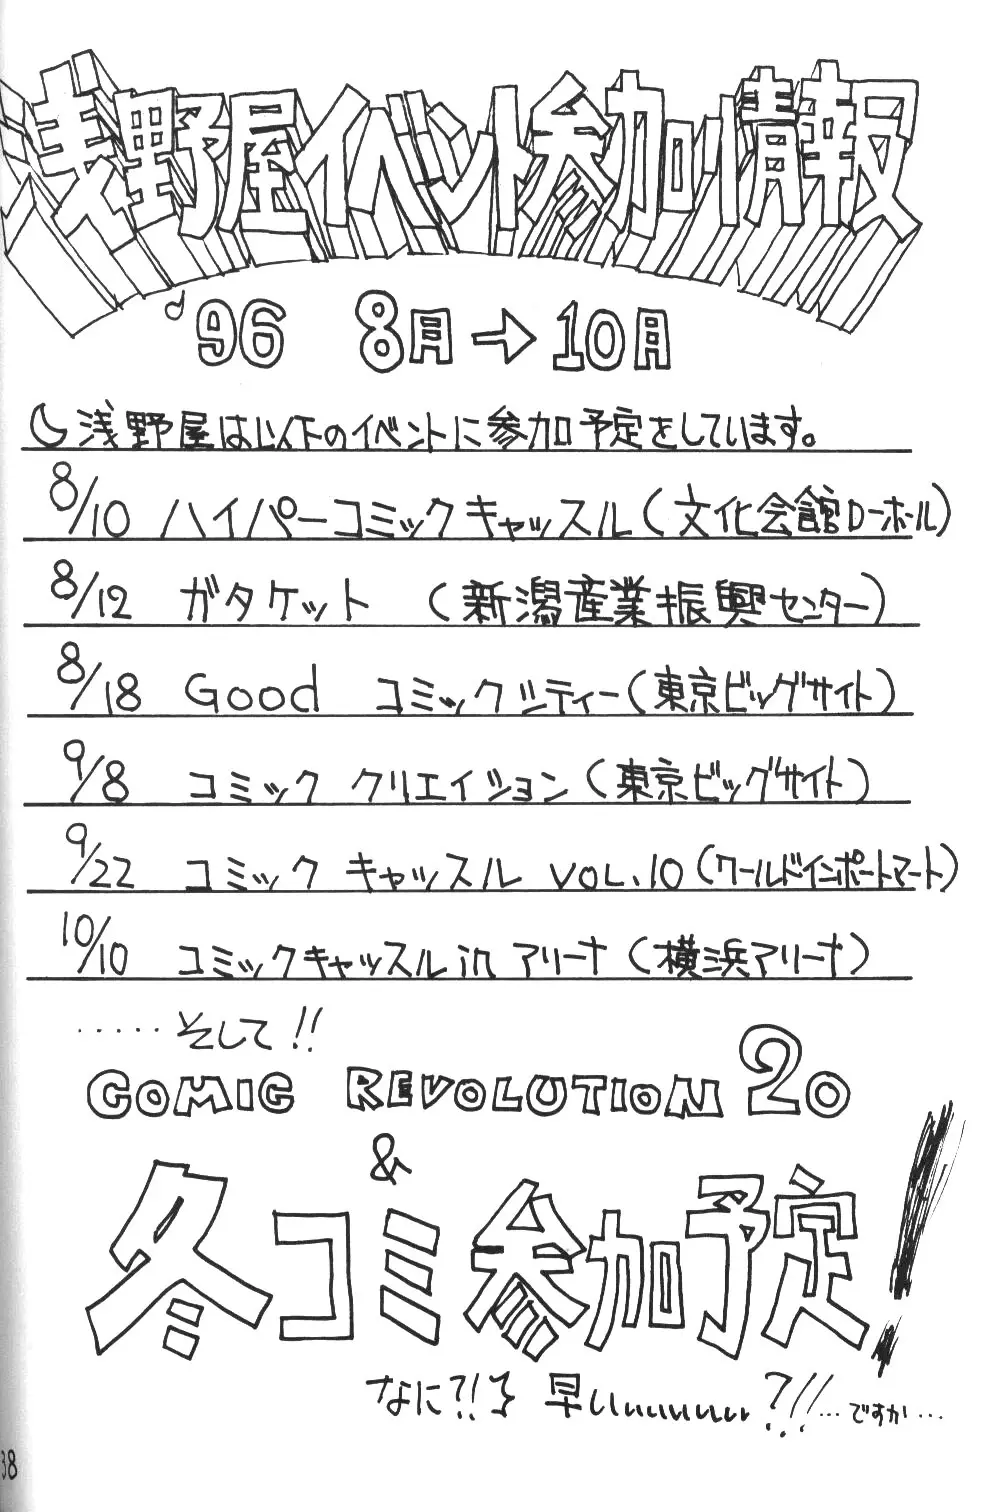 浅野屋イベント参加情報
'96 8月→10月
浅野屋は以下のイベントに参加予定をしています。
8/10 ハイパーコミックキャッスル(文化会館Dーホール)
8/12 ガタケット (新潟産業振興センター)
8/18 Good コミックシティー(東京ビッグサイト)
9/8 コミック クリエイション(東京ビッグサイト)
9/22 コミック キャッスル VOL.10(ワールドインポートマート)
10/10 コミックキャッスル in アリーナ(横浜アリーナ)
‥‥‥そして!!
COMIC REVOLUTION 20
&
冬コミ参加予定!
なに?! 早いぃぃぃぃぃ?!!…ですか…
38